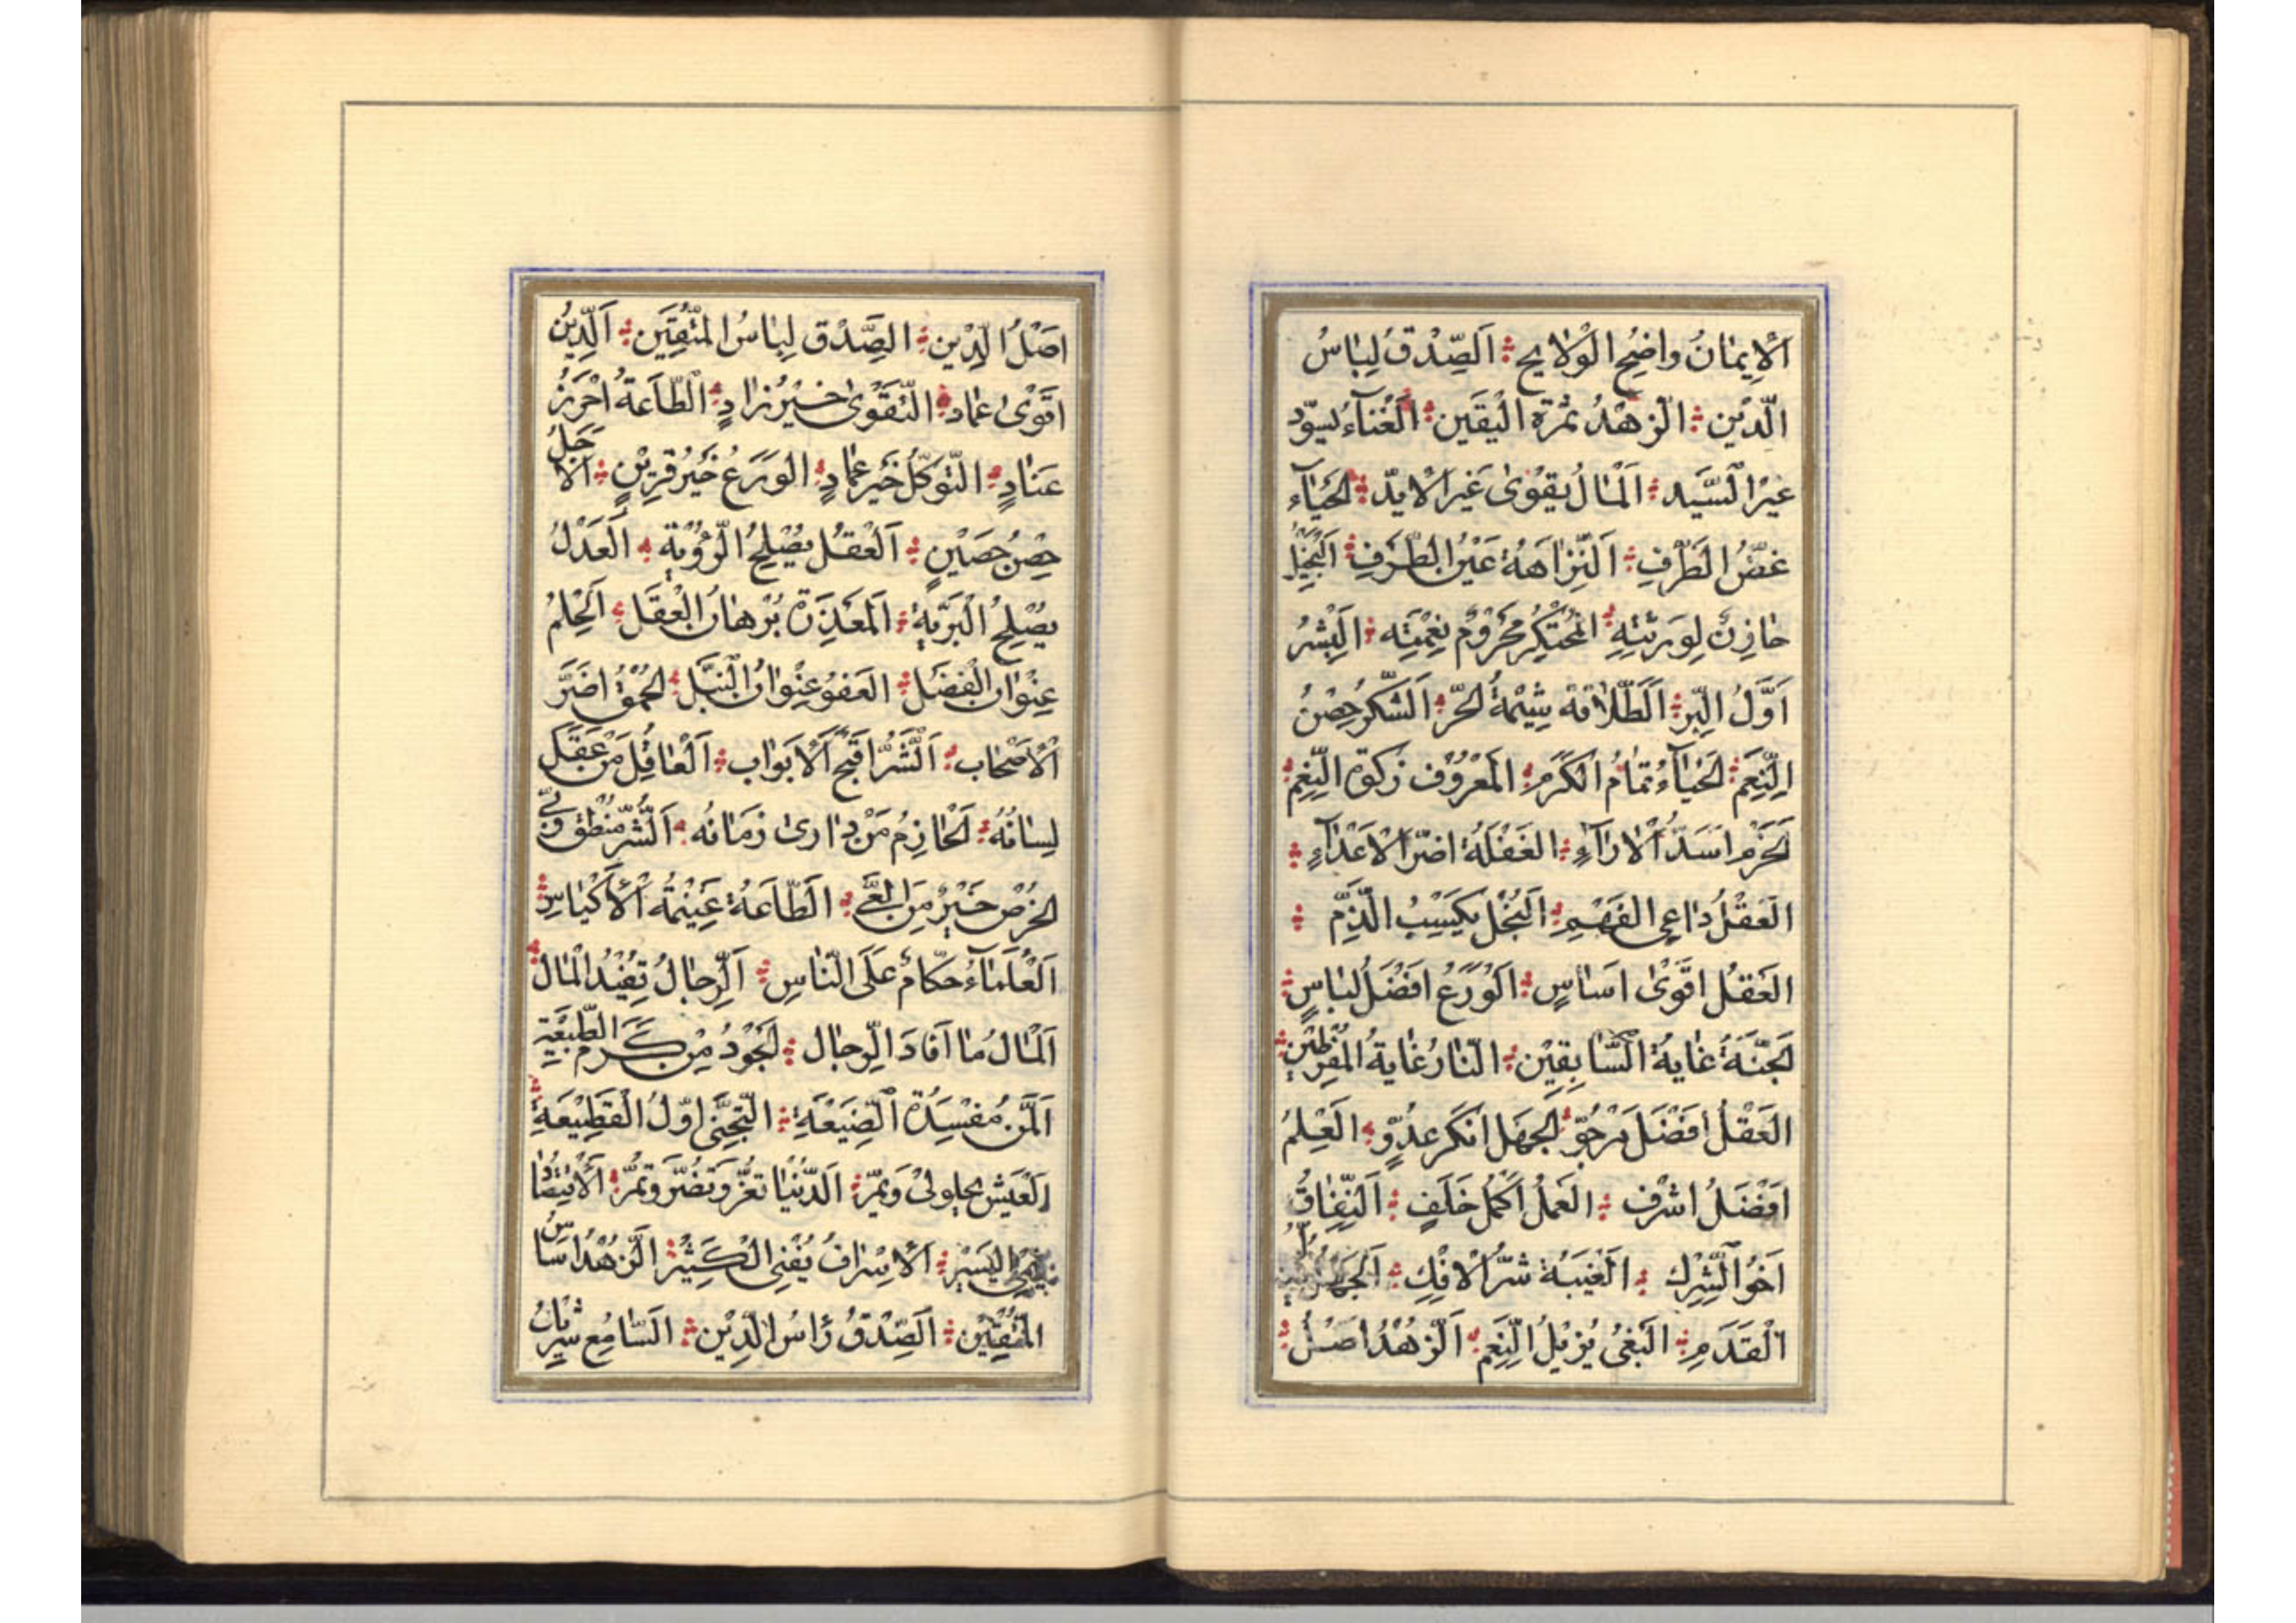 اَلْاِیمٰانُ واضِحُ الْوَلایِج اَلصِّدْقُ لِبٰاسُ
الدِّیْنِ الزُهْدُ ثَمْرَة الْیَقَین اَلْغُنآءُ یسوّد
غیرَ السَّیِد اَلْمٰالُ یقوٰی غَیرَ الْایدّ اَلحَیٰآء
غضُّ الْطَرْفِ اَلنِّزاهَةُ عَیْنُ الْظَرفِ اَلبَخیلُ
خٰازِنٌ لِوَرَثَتِهِ المُحْتَکِرُ مَحْرُوْمٌ نِعْمَتِه اَلْبِشْرُ
اَوَّلُ الْبِّر اَلَطَّلاٰقَة شِیْمَةُ الحُرّ اَلشُّکرُ حِصْنُ
النِّعَمِ اَلحَیٰآءُ تَمٰامُ الْکَرَمِ اَلمَعْرُوْف زکوة النِّعَمِ
اَلحَزْم اَسَدُّ الْارآءِ الغَفْلَةُ اضرّ الْاَعْدآءِ
اَلعَقْلُ دٰاعِی الفَهْمِ اَلبُخْل یَکسِبُ الْذَّم
العَقْل اقوٰی اَسٰاسٍ اَلْوَرَعُ افضَلُ لبٰاسٍ
اَلجَنَّةُ غٰایةُ السّٰابِقِیْن النّٰارُ غٰایَةُ المُفَرِّطِیْن
العَقْلُ افضَلَ مَرْجُوّ اَلجهَل انکَر عَدُوٍّ العِلمُ
اَفْضَلُ اشرْف العَمَلُ اَکمَلُ خَلَفٍ اَلنِّفٰاقُ
اَخُو الْشِرْكِ الْغَیْبَة شَرُّ الْاِفْكِ اَلجهلُ
اَلْقَدَمِ البَغیُ یُزِیْلُ النِّعَم الزُهْدُ اصْلُ
اصَلُ الدِّیْنِ الصِّدْق لِبٰاسُ المُتَّقِیَن اَلدِّیْنُ
اقَوٰی عمٰاد التَّقْوٰی خَیْرُ زٰادٍ الطّاعَةُ احْرَزُ
عَتٰادٍ التَّوَکّلُ خَیر عمٰادٍ الوَرَعُ خَیرُ قَرِیْنٍ الْاَجَلُ
حِصْنُ حَصَیْنٍ اَلعْقلُ یُصْلِحُ الرَّوِیَّةِ اَلعَدْلُ
یصْلِحُ الْبَرَیَّةِ اَلْمَعْذِرَة بُرْهٰانُ الْعَقلِ اَلحِلمُ
عِنْوٰان الْفَضلِ العَفوُ عِنْوٰانُ النُّبل اَلحُمْقُ اضَرَّ
الْاَصْحٰاب اَلشَّرُّ اقْبَحُ الْابَوٰاب اَلعٰاقِلُ مَنْ عَقَلَ
لِسٰانَهُ اَلحٰازِمُ مَنْ دٰاری زمَانُه اَلشَّر مُنْطَق فِیْ
الْحُرْص خَیْرٌ مِنَ الْعَیِّ الطّاعَةُ غَنِیْمَةُ الْاَکْیٰاسِ
اَلعُلَمٰآءُ حکّامٌ عَلَی النّٰاسِ اَلرِّجٰالُ تُفِیْدُ المٰالَ
اَلمٰالُ مٰا اَفٰادَ الرِّجٰال اَلجُوْدُ مِنْ کَرَم الطَّبِیْعَةِ
اَلمَنُ مُفْسِدَة الصَّنِیْعَةِ التَّجَنّی اوّلُ الْقَطِیْعَةِ
اَلْعَیش یحلولی وَیمّر الدُّنْیٰا تَغُرُّ وَتَضُرُّ وَتَمُرُّ اَلْاقتِصٰادُ
یُنمی الیَسیْر اَلْاِسْرٰافُ یُفْنِی الْکَثِیْر الزُهْدُ اسَاسُ
المُتَّقِیْن اَلصِّدْقُ رَاسُ الدِّیْن اَلسّٰامِع شَرِیْكُ